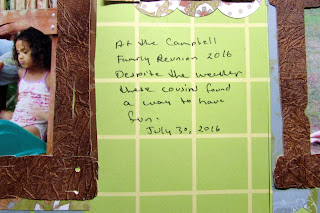 At the Campbell
Family Reunion 2016
Despite the weather
these cousins found
a way to have
fun.
July 30, 2016